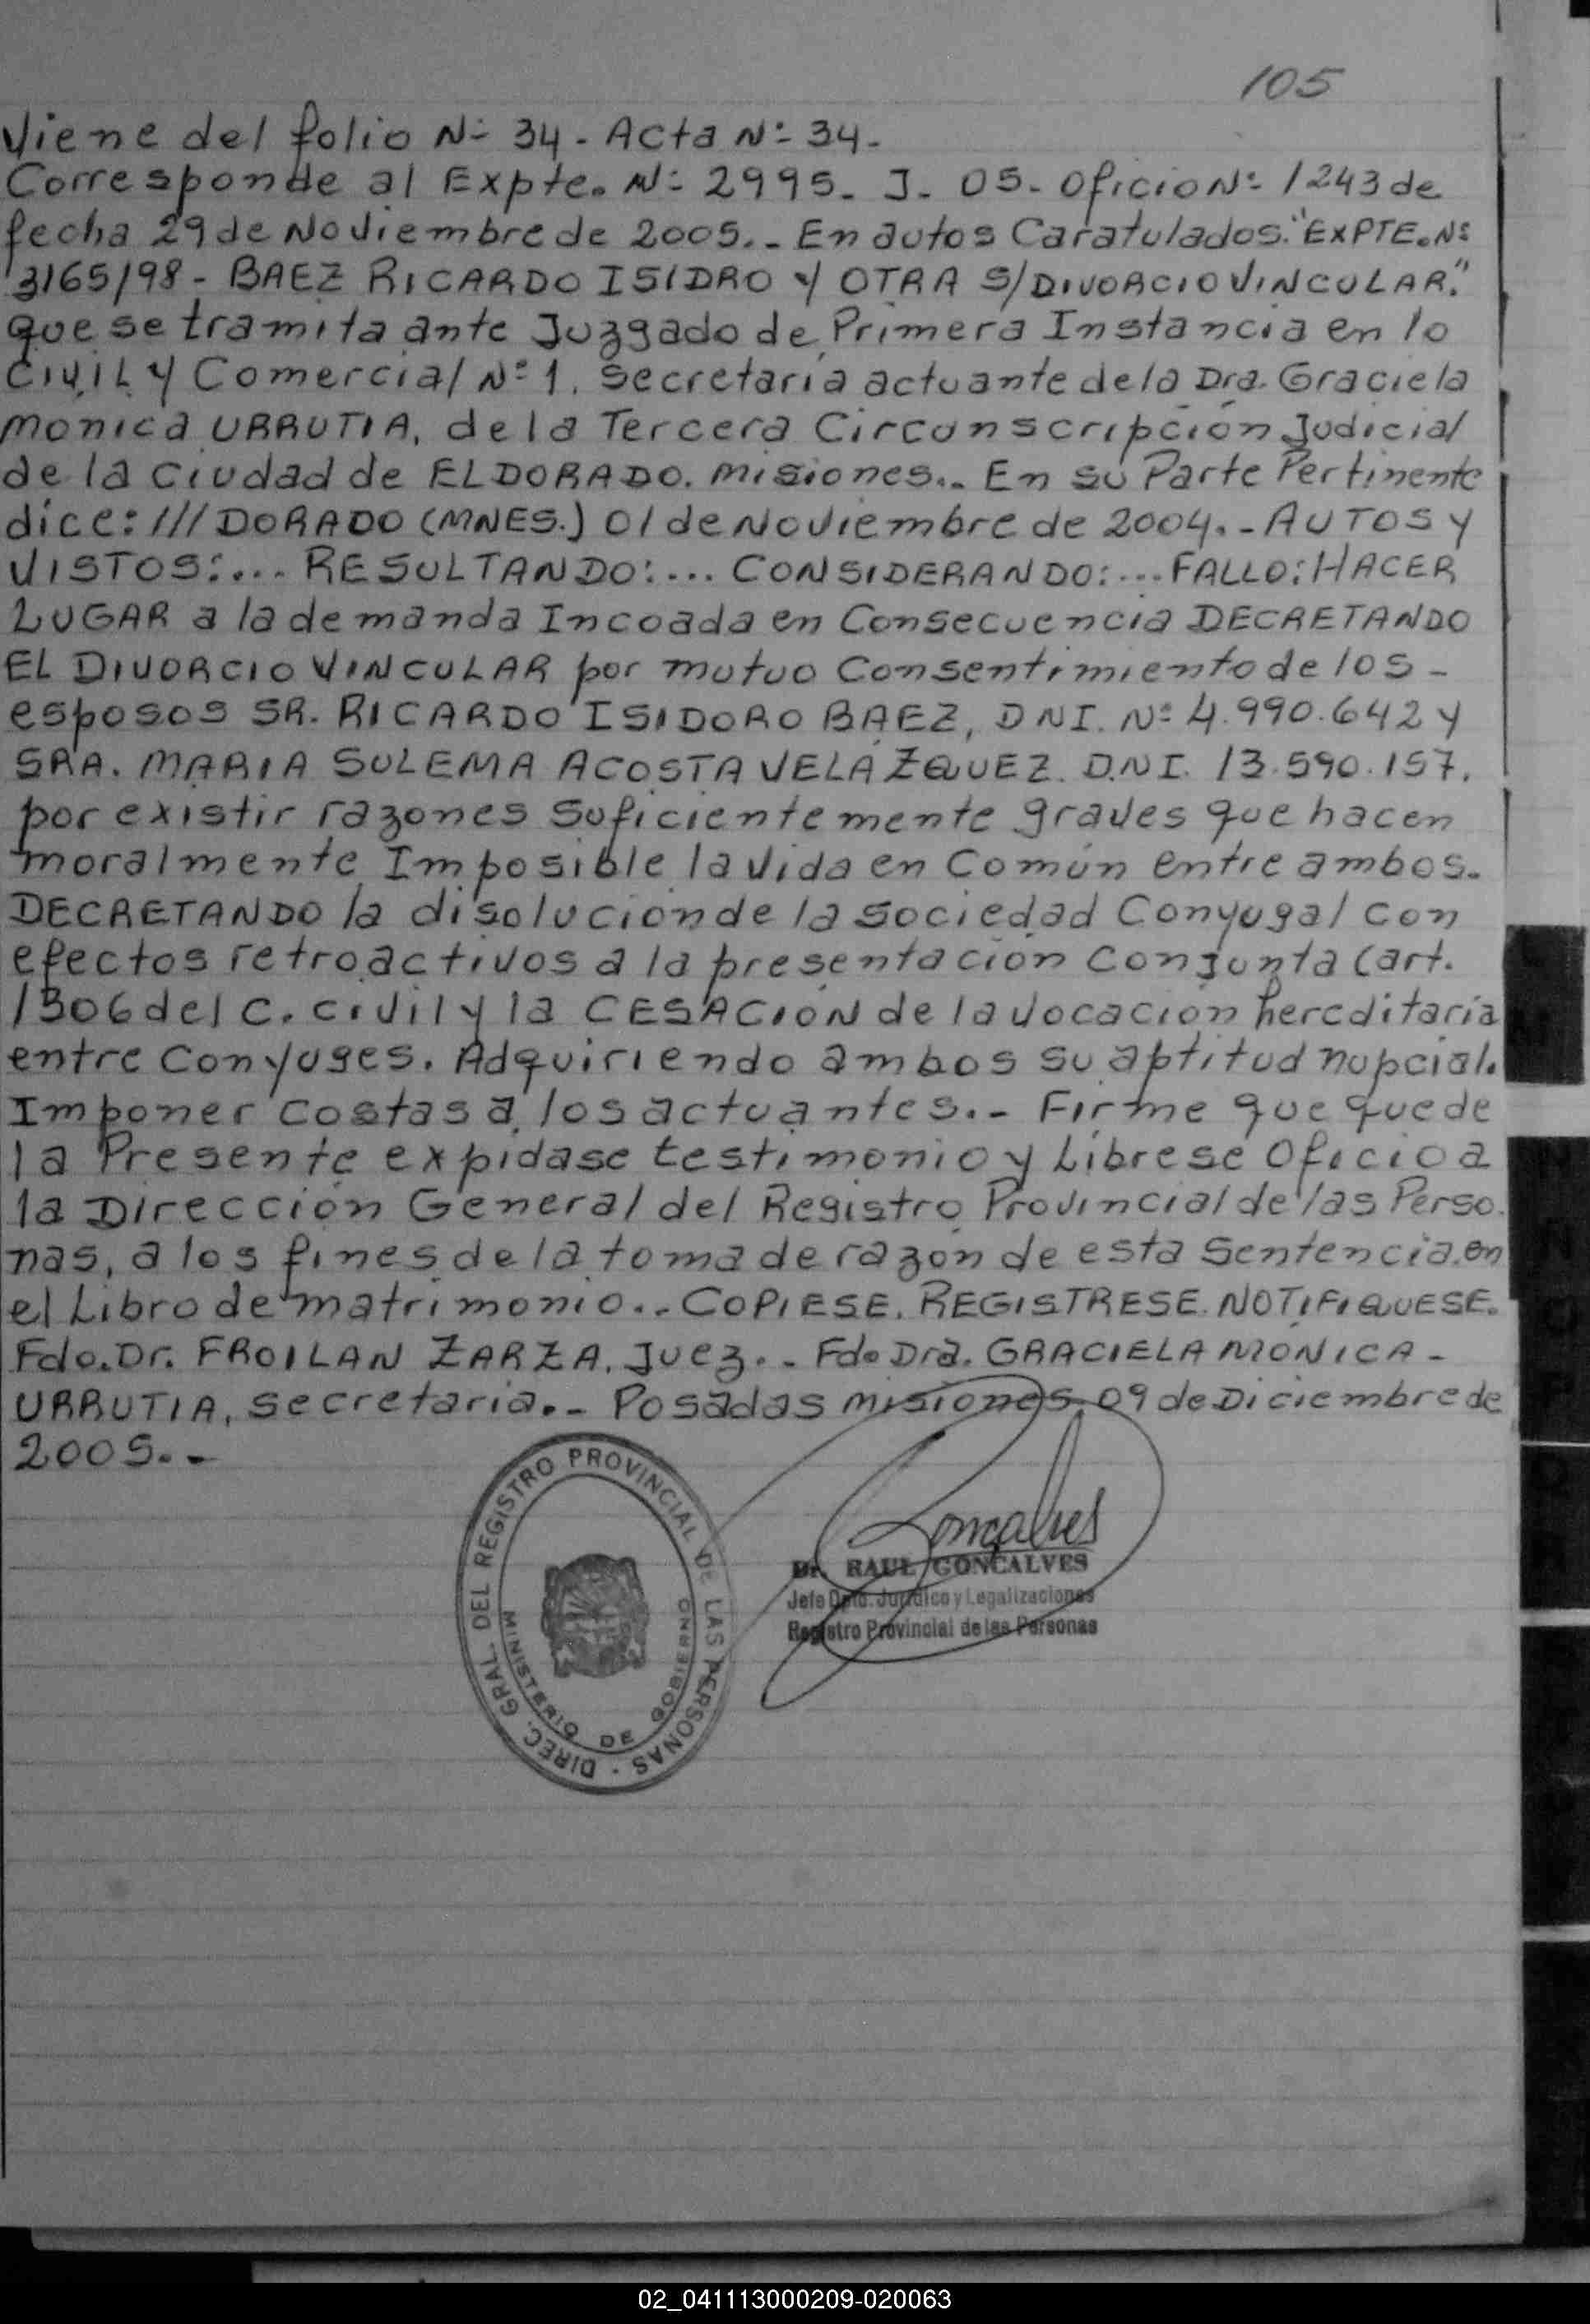 105
Viene del folio Nº 34 - Acta Nº 34.
Corresponde al Expte. Nº 2995. J. 05. Oficio Nº 1243 de
fecha 29 de Noviembre de 2005.- En autos Caratulados: "EXPTE. Nº
3165/98 - BAEZ RICARDO ISIDRO Y OTRA S/DIVORCIO VINCULAR."
que se tramita ante Juzgado de Primera Instancia en lo
CIVIL Y Comercial Nº 1. Secretaría actuante de la Dra. Graciela
Monica URRUTIA, de la Tercera Circunscripción Judicial
de la Ciudad de ELDORADO. Misiones.. En su Parte Pertinente
dice: /// DORADO (MNES.) 01 de Noviembre de 2004.- AUTOS Y
VISTOS:... RESULTANDO:... CONSIDERANDO:... FALLO: HACER
LUGAR a la demanda Incoada en Consecuencia DECRETANDO
EL DIVORCIO VINCULAR por mutuo Consentimiento de los -
esposos SR. RICARDO ISIDORO BAEZ, DNI. Nº 4.990.642 y
SRA. MARIA SULEMA ACOSTA VELAZQUEZ. D.N.I. 13.590.157.
por existir razones suficientemente graves que hacen
moralmente Imposible la vida en Común entre ambos.
DECRETANDO la disolución de la sociedad Conyugal con
efectos retroactivos a la presentación Conjunta (art.
1306 del C. Civil y la CESACIÓN de la vocación hereditaria
entre Conyuges. Adquiriendo ambos su aptitud nupcial.
Imponer Costas a los actuantes.- Firme que quede
la Presente expídase testimonio y Líbrese Oficio a
la Dirección General del Registro Provincial de las Perso.
nas, a los fines de la toma de razón de esta Sentencia en
el Libro de matrimonio.. - COPIESE. REGISTRESE. NOTIFIQUESE.
Fdo. Dr. FROILAN ZARZA. Juez. - Fdo Dra. GRACIELA MÓNICA -
URRUTIA, secretaria.- Posadas Misiones, 09 de Diciembre de
2005.-
DIREC. GRAL. DEL REGISTRO PROVINCIAL DE LAS PERSONAS
MINISTERIO DE GOBIERNO
Goncalves
Dr. RAUL GONCALVES
Jefe Dpto. Jurídico y Legalizaciones
Registro Provincial de las Personas
02_041113000209-020063